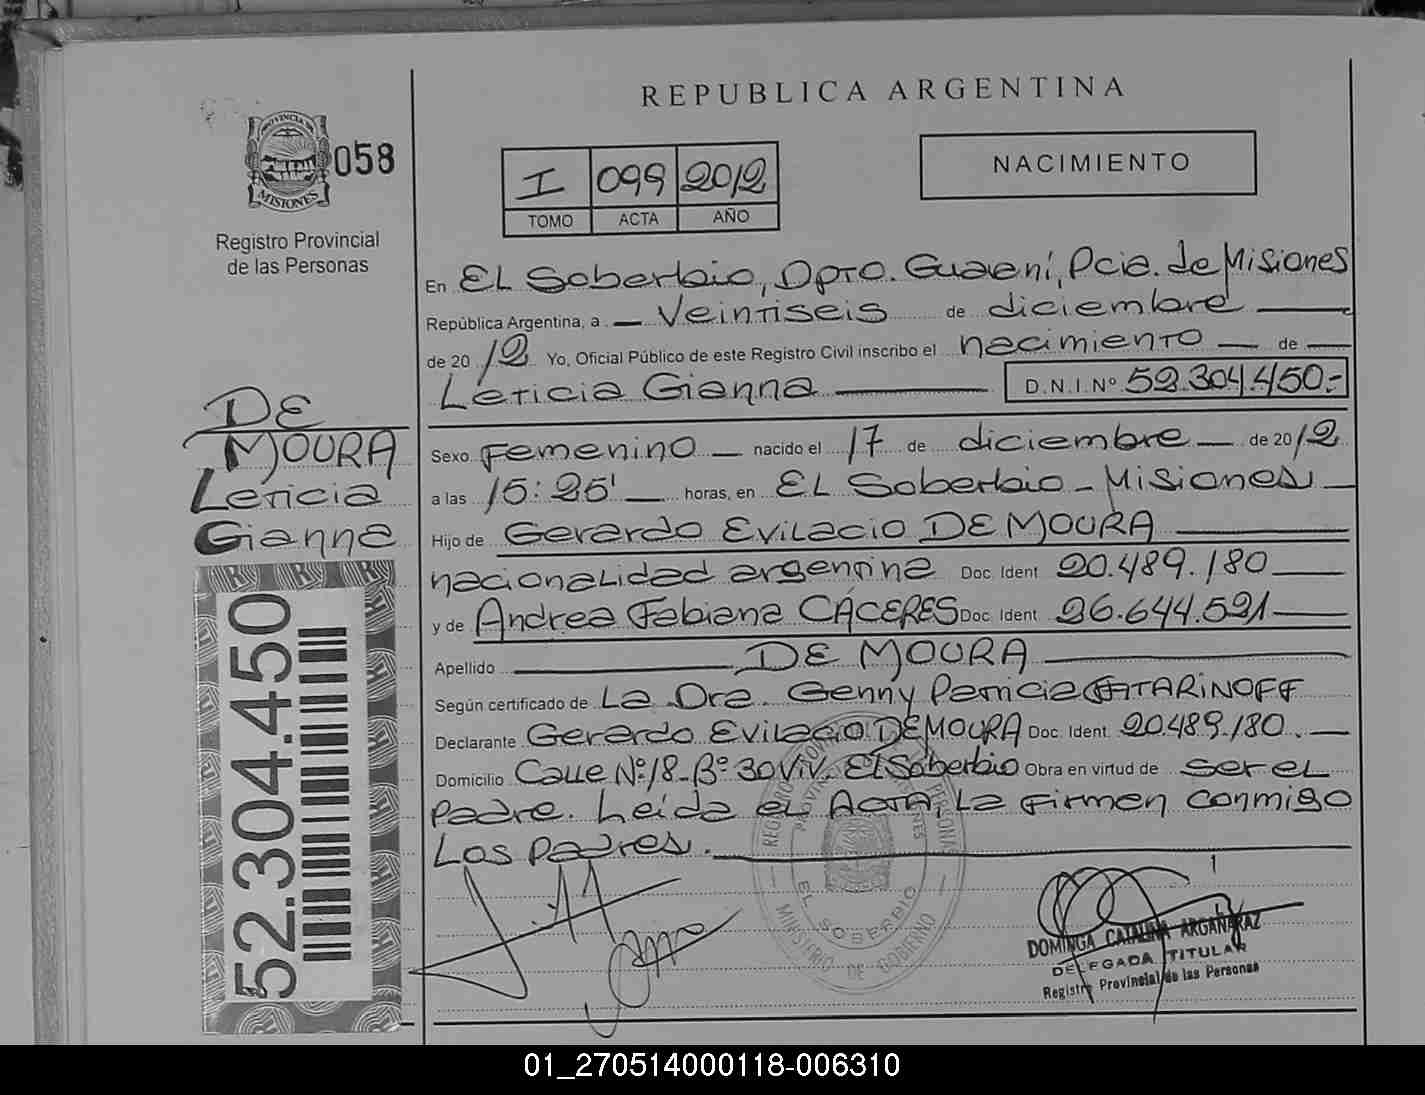 REPUBLICA ARGENTINA
PROVINCIA DE MISIONES
058
Registro Provincial
de las Personas
I 099 2012
TOMO ACTA AÑO
NACIMIENTO
En EL Soberbio, Dpto. Guaraní, Pcia. de Misiones
República Argentina, a Veintiseis de diciembre
de 2012 Yo, Oficial Público de este Registro Civil inscribo el nacimiento de
Leticia Gianna D.N.I.Nº 52.304.450.-
DE
MOURA
Leticia
Gianna
Sexo Femenino nacido el 17 de diciembre de 2012
a las 15:25' horas, en EL Soberbio - Misiones
Hijo de Gerardo Evilacio DE MOURA
nacionalidad argentina Doc. Ident 20.489.180
y de Andrea Fabiana CÁCERES Doc. Ident 26.644.521
Apellido DE MOURA
Según certificado de La Dra. Genny Patricia
Declarante Gerardo Evilacio DE MOURA Doc. Ident. 20.489.180.
Domicilio Calle Nº 18 - Bº 30 Viv. El Soberbio Obra en virtud de ser el
padre. Leída el Acta, la firman conmigo
Los padres.
52.304.450
REGISTRO PROVINCIAL DE LAS PERSONAS
EL SOBERBIO
MINISTERIO DE GOBIERNO
DOMINGA CATALINA ARGAÑARAZ
DELEGADA TITULAR
Registro Provincial de las Personas
01_270514000118-006310